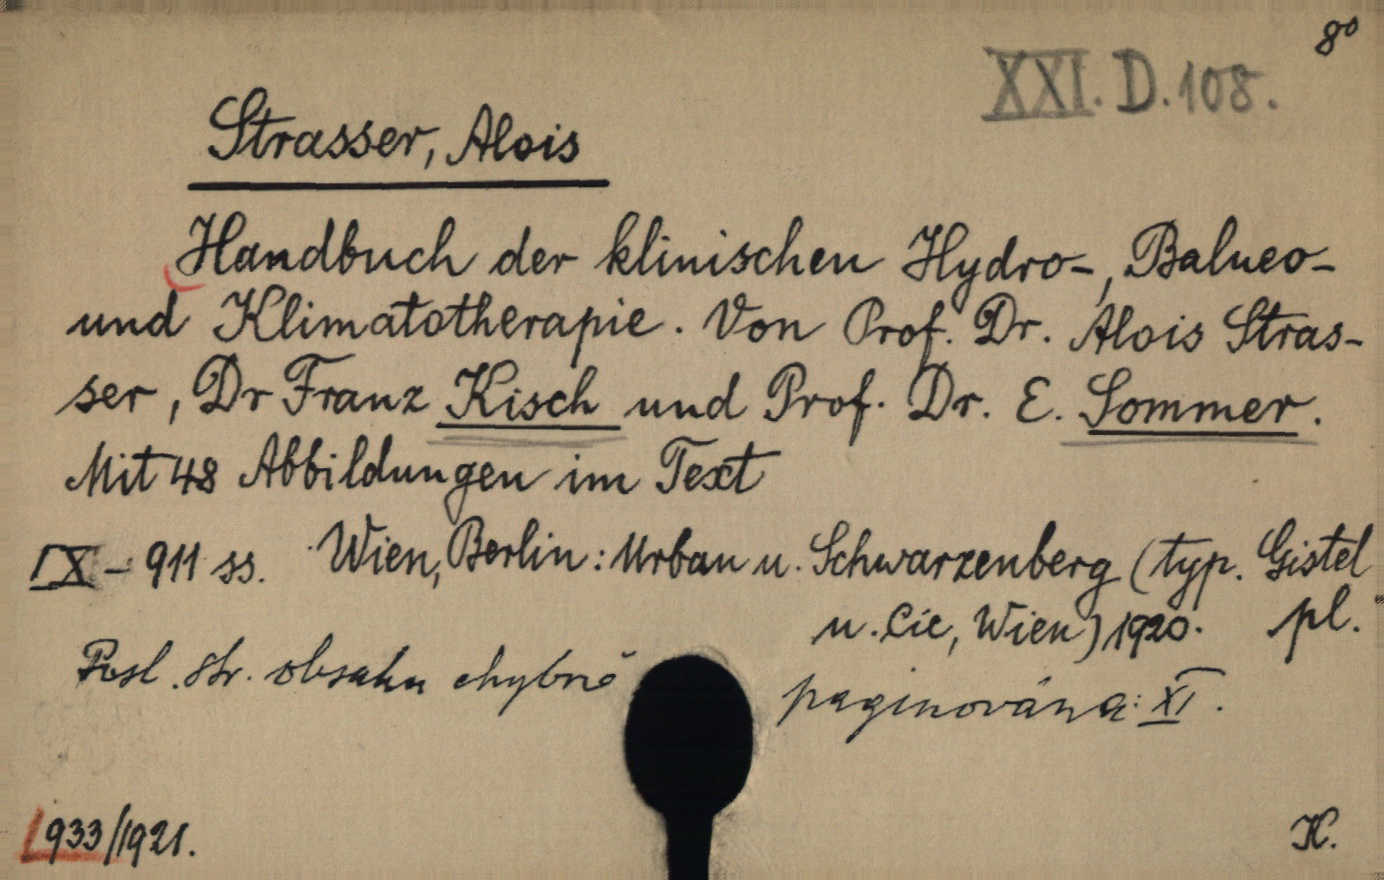 8°
XXI. D. 108.
Strasser, Alois
Handbuch der klinischen Hydro-, Balneo-
und Klimatotherapie. Von Prof. Dr. Alois Stras-
ser, Dr Franz Kisch und Prof. Dr. E. Sommer.
Mit 48 Abbildungen im Text
IX - 911 ss. Wien, Berlin: Urban u. Schwarzenberg (typ. Gistel
u. Cie, Wien) 1920. pl.
Posl. str. obsahu chybně paginována: XI.
933/1921.
K.